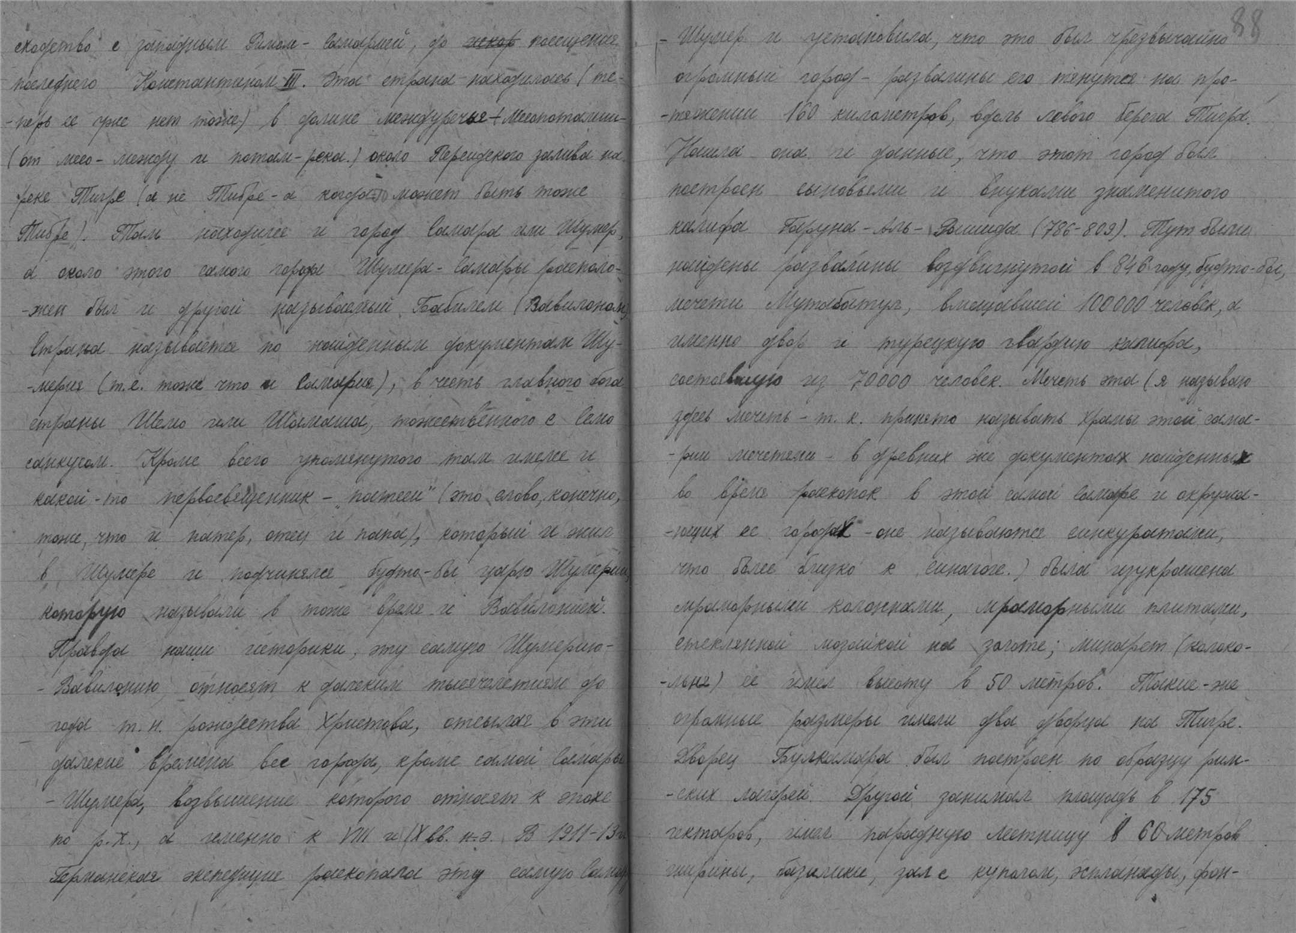 сходство" с западным Римом-Самарией, до посещения
последнего Константином III. Эта страна находилась (те-
-перь ее уже нет тоже) в долине междуречья-Месопотамии-
(от мезо-между и потам-река.) около Персидского залива на
реке Тигре (а не Тибре-а когда-то может быть тоже
Тибре). Там находился и город Самара или Шумер,
а около этого самого города Шумера-Самары располо-
-жен был и другой называемый Бабилем (Вавилоном)
Страна называется по найденным документам Шу-
-мерия (т.е. тоже что и Самария), в честь главного бога
страны Шемо или Шамаша, тожественного с Семо
санкусом. Кроме всего упомянутого там имелся и
какой-то первосвященник-"патеси" (это слово, конечно,
тоже, что и патер, отец и папа), который и жил
в Шумере и подчинялся будто-бы царю Шумерии,
которую называли в тоже время и Вавилонией.
Правда наши историки, эту самую Шумерию-
-Вавилонию, относят к далеким тысячелетиям до
года т.н. рождества Христова, отсылая в эти
далекие времена все города, кроме самой Самары
-Шумера, возвышение которого относят к эпохе
по р.х., а именно к VIII и IX вв. н.э. В 1911-13
Германская экспедиция раскопала эту самую Самару
88
-Шумер и установила, что это был чрезвычайно
огромный город-развалины его тянутся на про-
-тяжении 160 километров, вдоль левого берега Тигра.
Нашла она и данные, что этот город был
построен сыновьями и внуками знаменитого
калифа Гаруна-Аль-Рашида (786-809). Тут были
найдены развалины воздвигнутой в 846 году, будто-бы,
мечети, вмещавшей 100000 человек, а
именно двор и турецкую гвардию калифа,
состоявшую из 70000 человек. Мечеть эта (я называю
здесь мечеть-т.к. принято называть храмы этой сама-
-рии мечетями-в древних же документах найденных
во время раскопок в этой самой Самаре и окружа-
-ющих ее городах-они называются синкуратами,
что более близко к синагоге.) была изукрашена
мраморными колоннами, мраморными плитами,
стеклянной мозаикой на золоте; минарет (колоко-
-льня) ее имел высоту в 50 метров. Такие-же
огромные размеры имели два дворца на Тигре.
Дворец Булкамара был построен по образцу рим-
-ских лагерей. Другой занимал площадь в 175
гектаров, имел парадную лестницу в 60 метров
ширины, базилики, зал с куполом, эспланады, фон-